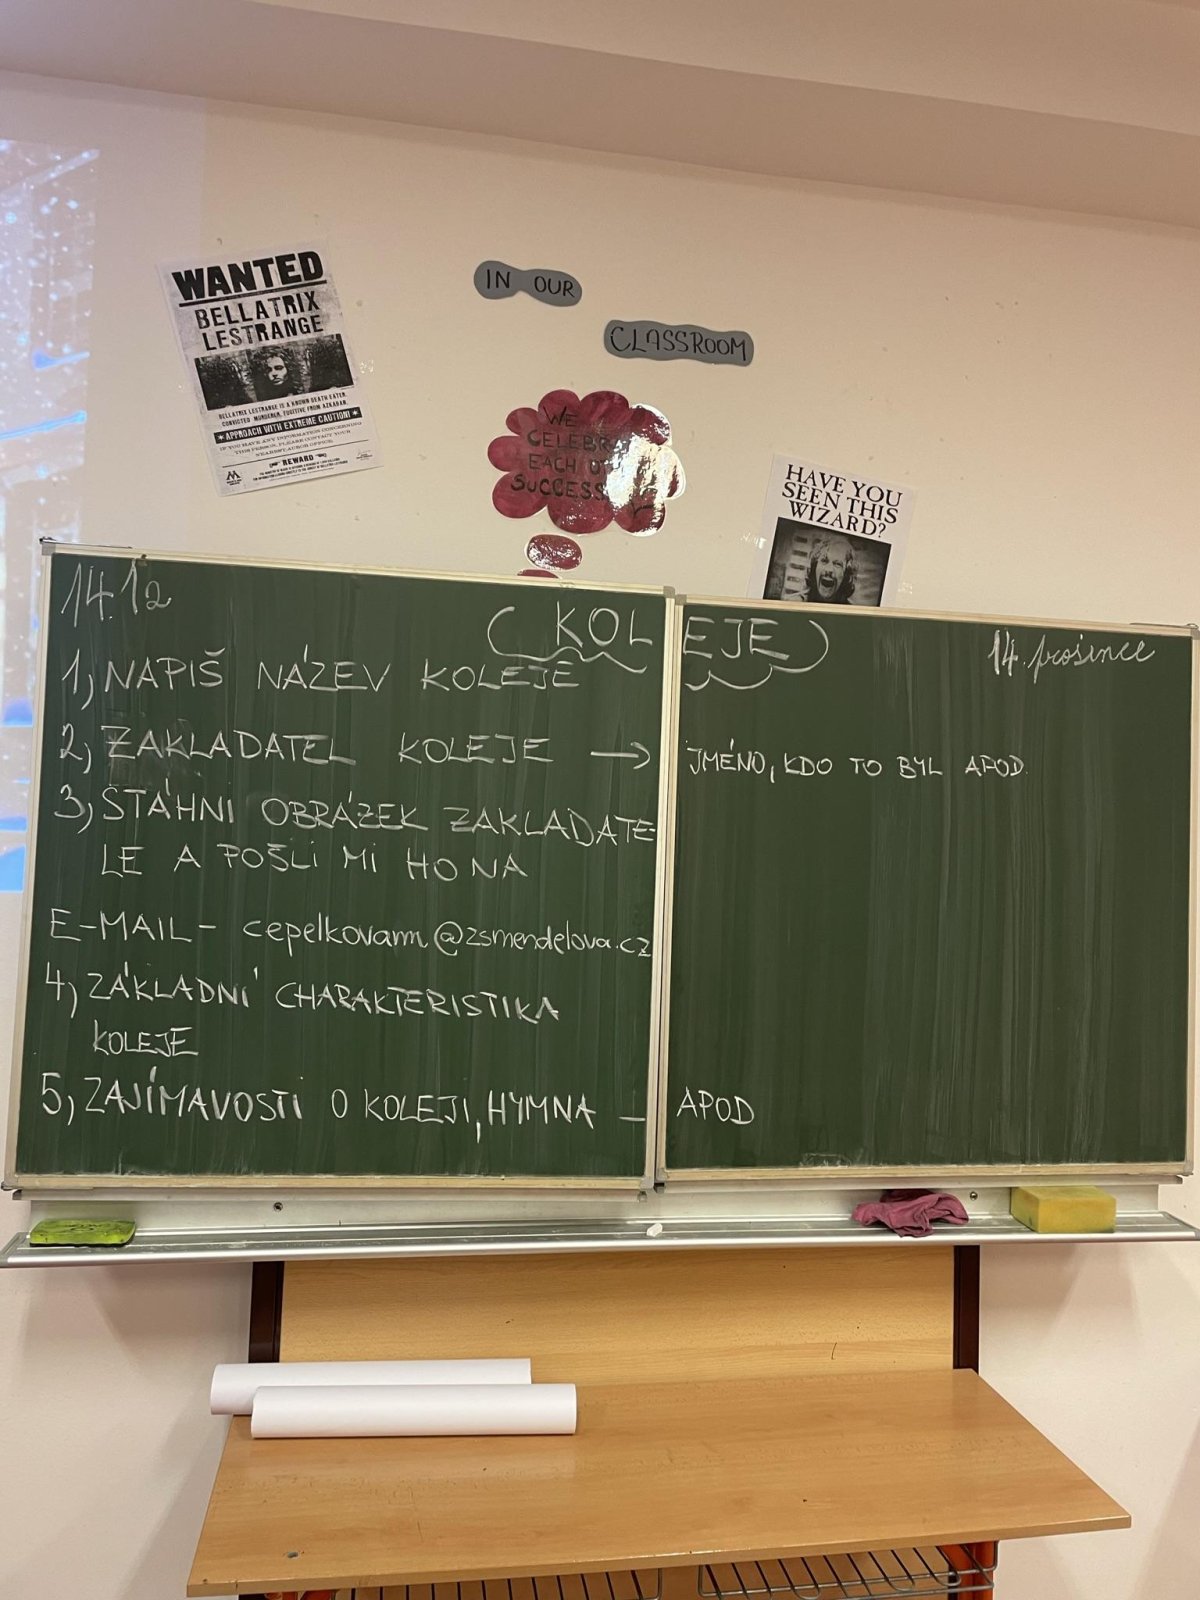 WANTED
BELLATRIX
LESTRANGE
BELLATRIX LESTRANGE IS A KNOWN DEATH EATER,
CONVICTED MURDERER, FUGITIVE FROM AZKABAN.
* APPROACH WITH EXTREME CAUTION! *
IF YOU HAVE ANY INFORMATION CONCERNING
THIS PERSON, PLEASE CONTACT YOUR
NEAREST AUROR OFFICE.
REWARD
IN OUR
CLASSROOM
WE
CELEBRA
EACH O
SUCCESS
HAVE YOU
SEEN THIS
WIZARD?
14.12
(KOLEJE)
14. prosince
1, NAPIŠ NÁZEV KOLEJE
2, ZAKLADATEL KOLEJE → JMÉNO, KDO TO BYL APOD.
3, STÁHNI OBRÁZEK ZAKLADATE-
LE A POŠLI MI HO NA
E-MAIL - cepelkovam@zsmendelova.cz
4, ZÁKLADNÍ CHARAKTERISTIKA
KOLEJE
5, ZAJÍMAVOSTI O KOLEJI, HYMNA – APOD